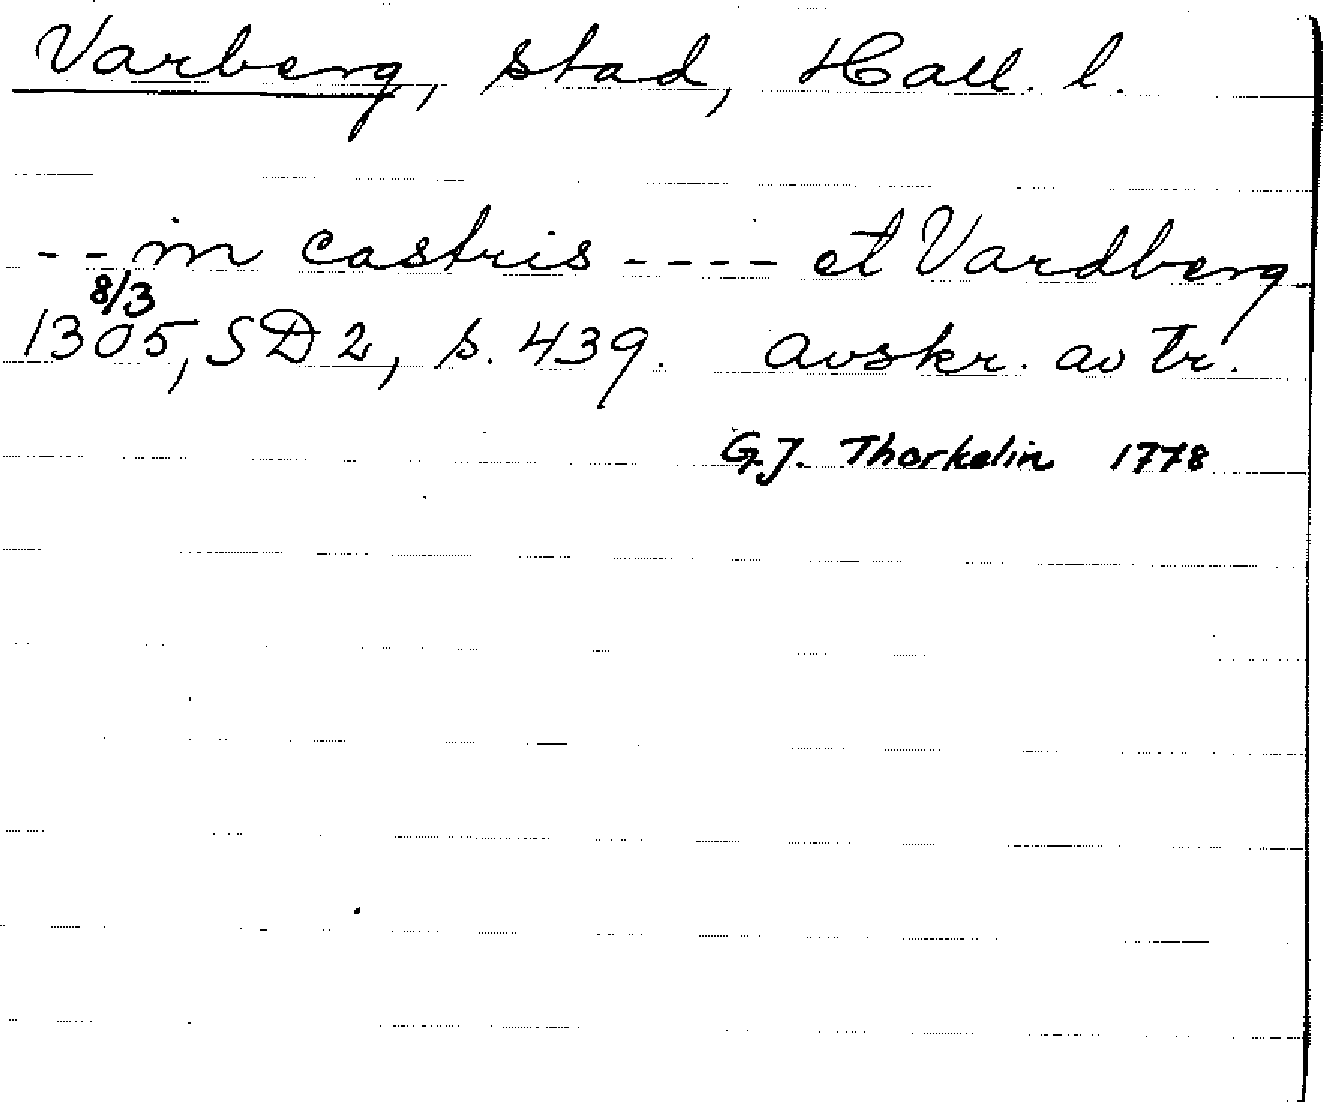 Varberg, stad, Hall. l.
-- in castris ---- et Vardberg
8/3
1305, SD 2, s. 439. avskr. av tr.
G.J. Thorkelin 1778